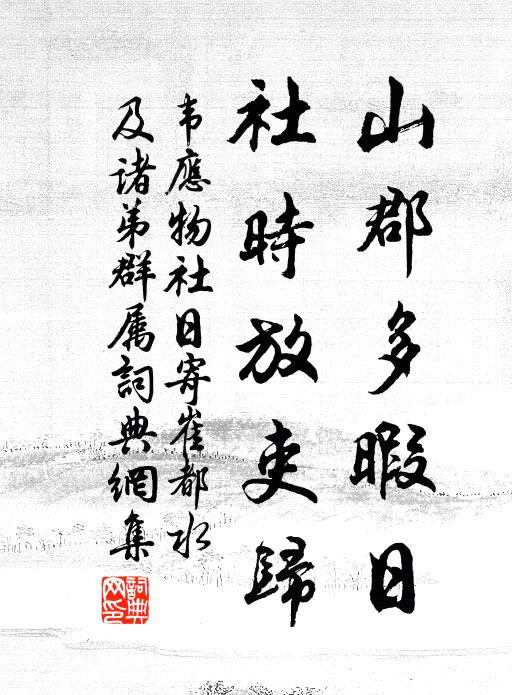 山郡多暇日
社時放吏歸
韦應物社日寄崔都水
及諸弟群属詞典網集
詞典網印